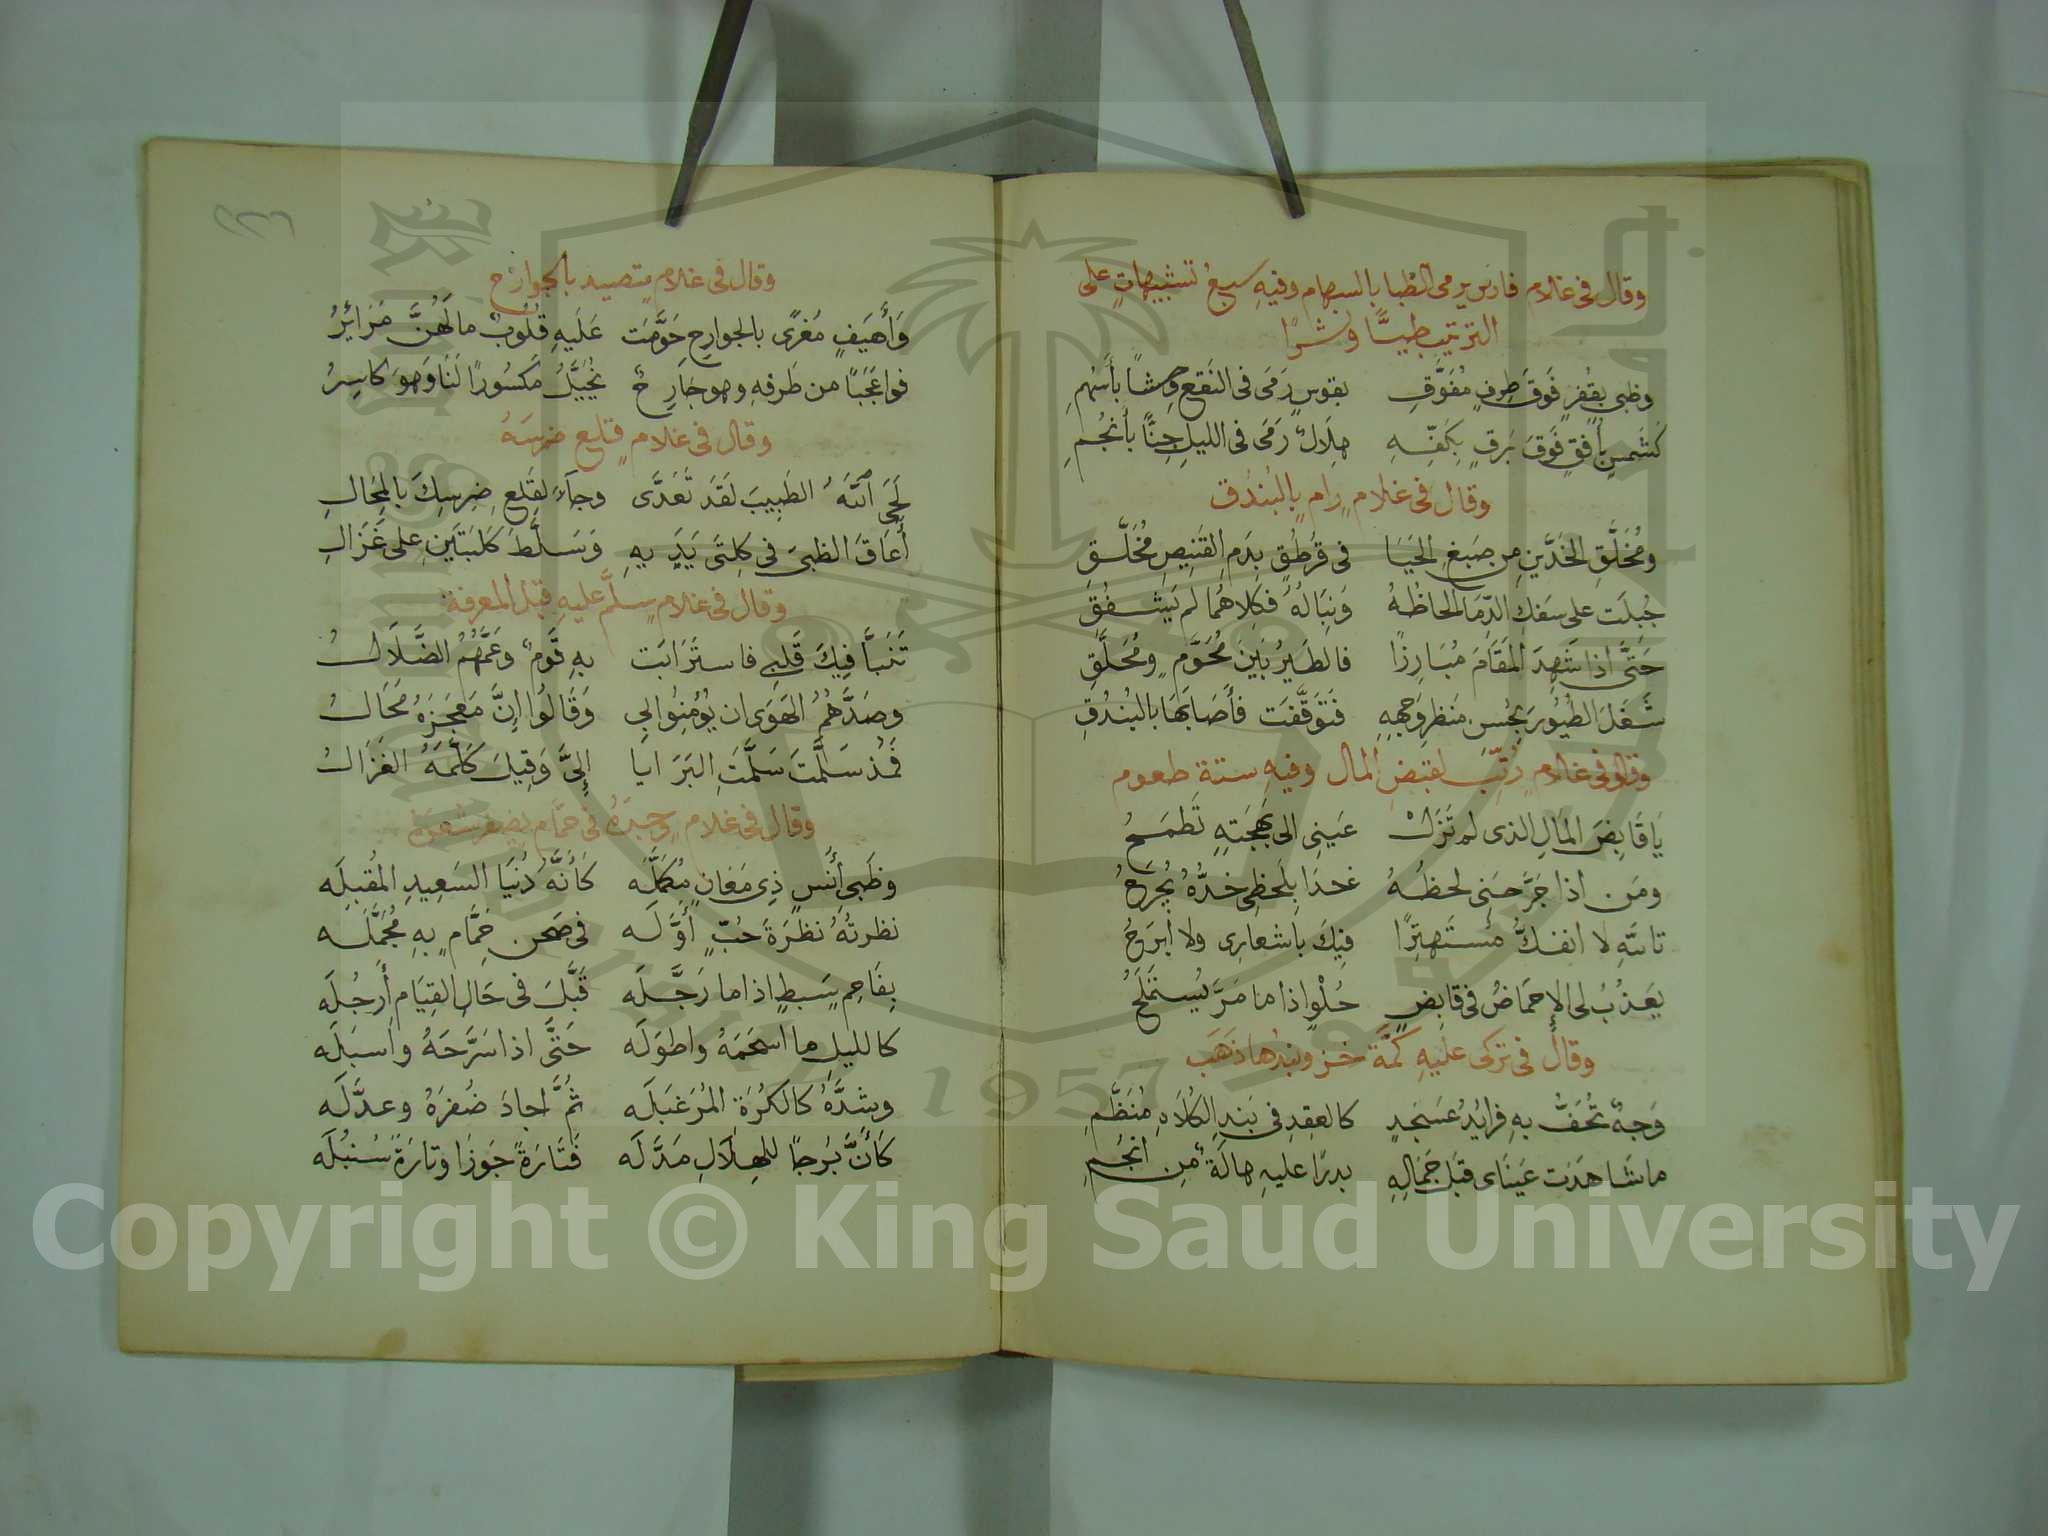 وقال فى غلام فارس يرمى الظبا بالسهام وفيه سبع تشبيهات على
الترتيب طيًّا ونشرًا
وظبى بقفرٍ فَوقَ طِرفٍ مُفَوَّقِ بقوسٍ رَمَى فى النَقع وحشاً بأَسْهُمِ
كشَمسٍ بأُفقٍ فَوقَ بَرقٍ بِكَفِّهِ هِلَالٌ رَمَى فى الليلِ جِنًّا بأَنجُمِ
وقال فى غلامٍ رامٍ بالبُندُق
ومُخَلَّقِ الخَدَّينِ من صَبغِ الحَيَا فى قُرطُقٍ بِدَمِ القَنِيصِ مُخَلَّقِ
جُبلَت على سَفكِ الدِّمَا الحاظُهُ وَنِبَالُهُ فكِلاهُمَا لم يَشفُقِ
حَتَّى اذا شَهِدَ المَقَامَ مُبَارِزاً فالطَيرُ بَينَ مُحَوَّمٍ ومُحَلَّقِ
شَغَلَ الطُيُورَ بحُسنِ منظرِ وَجهِهِ فَتَوَقَّفَت فأَصَابَها بالبُندُقِ
وقال فى غلامٍ رُتِّبَ لقبضِ المال وفيهِ ستة طعوم
يَا قَابِضَ المَالِ الذى لم تَزَل عَينِى الى بَهجَتِهِ تَطمَحُ
ومَن اذا جَرَّحَنى لحظُهُ غدا بِلَحظِى خدُّهُ يُجرَحُ
تاللهِ لا انفكّ مُستَهتِرًا فِيكَ باشعارِى ولا أبرَحُ
يَعذُبُ لى الإِحمَاضُ فى قابِضٍ حُلْوٍ اذا ما مَرَّ يُستَملَحُ
وقال فى تركى عليهِ كمَّة خز وبندها ذهَب
وَجهٌ تحُفُّ بهِ فرايدُ عَسجَدٍ كالعِقدِ فى بَندِ الكُلَاهِ مُنَظَّمِ
ما شَاهَدَت عَينَاى قَبلَ جَمَالِهِ بدرًا عليهِ هالَةٌ مِن انجُمِ
وقال فى غلامٍ متصيد بالجوارح
وَأَهيَفٍ مُغرًى بالجوارِح حَوَّمَت عَلَيهِ قُلُوبٌ ما لَهُنَّ مَرَائِرُ
فواعَجَبًا من طَرفهِ وهو جَارِحٌ يُخَيَّلُ مَكسُورًا لَنَا وَهوَ كاسِرُ
وقال فى غلامٍ قلع ضرسَهُ
لَحَى اللهُ الطَبِيبَ لَقَد تَعَدَّى وجآءَ لقَلعِ ضِرسِكَ بالمُحالِ
أَعَاقَ الظبىَ فى كِلتَى يَدَيهِ وَسَلَّطَ كَلبَتَينِ على غَزَالِ
وقال فى غلامٍ سلَّم عليهِ قبل المعرفة
تَنَبَّأَ فِيكَ قَلبِى فاستَرَابَت بهِ قَومٌ وعَمَّهُمُ الضَّلَالُ
وصَدَّهُمُ الهَوَى ان يُؤمِنُوا بى وَقَالُوا إِنَّ مَعجِزَهُ مُحَالُ
فَمُذ سَلَّمتَ سَلَّمَتِ البَرَايا إِلىَّ وَقِيلَ كَلَّمَهُ الغَزَالُ
وقال فى غلامٍ وجدَهُ فى حمّامٍ يضفر شعره
وظَبىِ أُنسٍ ذِى مَعَانٍ مُكمَلَه كَأَنَّهُ دُنيَا السَعِيدِ المُقبِلَه
نظرتُهُ نظرَةَ حُبٍّ أَوَّلَه فى صَحنِ حمَّامٍ بهِ مُجَمَّلَه
بِفَاحِمٍ سَبطٍ اذا ما رَجَّلَه قَبَّلَ فى حَالِ القِيَام أَرجُلَه
كالليلِ ما اسحَمَهُ واطوَلَه حَتَّى اذا سَرَّحَهُ واَسبَلَه
وشدَّهُ كالكُرَةِ المُزَغبَلَه ثُمَّ اجادَ ضُفرَهُ وعدَّلَه
كَأَنَّ بُرجاً للهِلَالِ مَدَّلَه فَتَارَةً جَوزَا وتارَةً سُنبُلَه